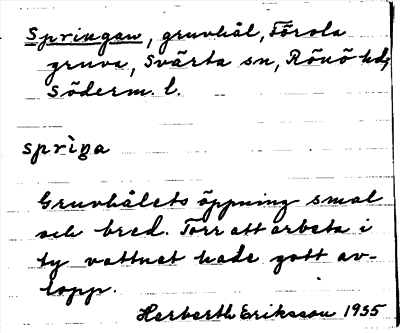 Springan, gruvhål, Förola
gruva, Svärta sn, Rönö hd,
Söderm. l.
spriŋa
Gruvhålets öppning smal
och bred. Torr att arbeta i
ty vattnet hade gott av-
lopp.
Herberth Eriksson 1935